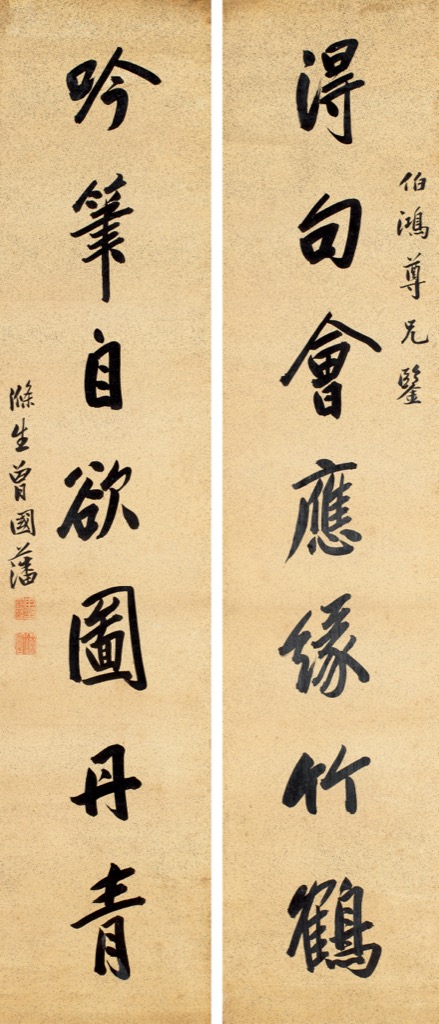 伯鴻尊兄鑒
得句會應緣竹鶴
吟筆自欲圖丹青
滌生曾國藩